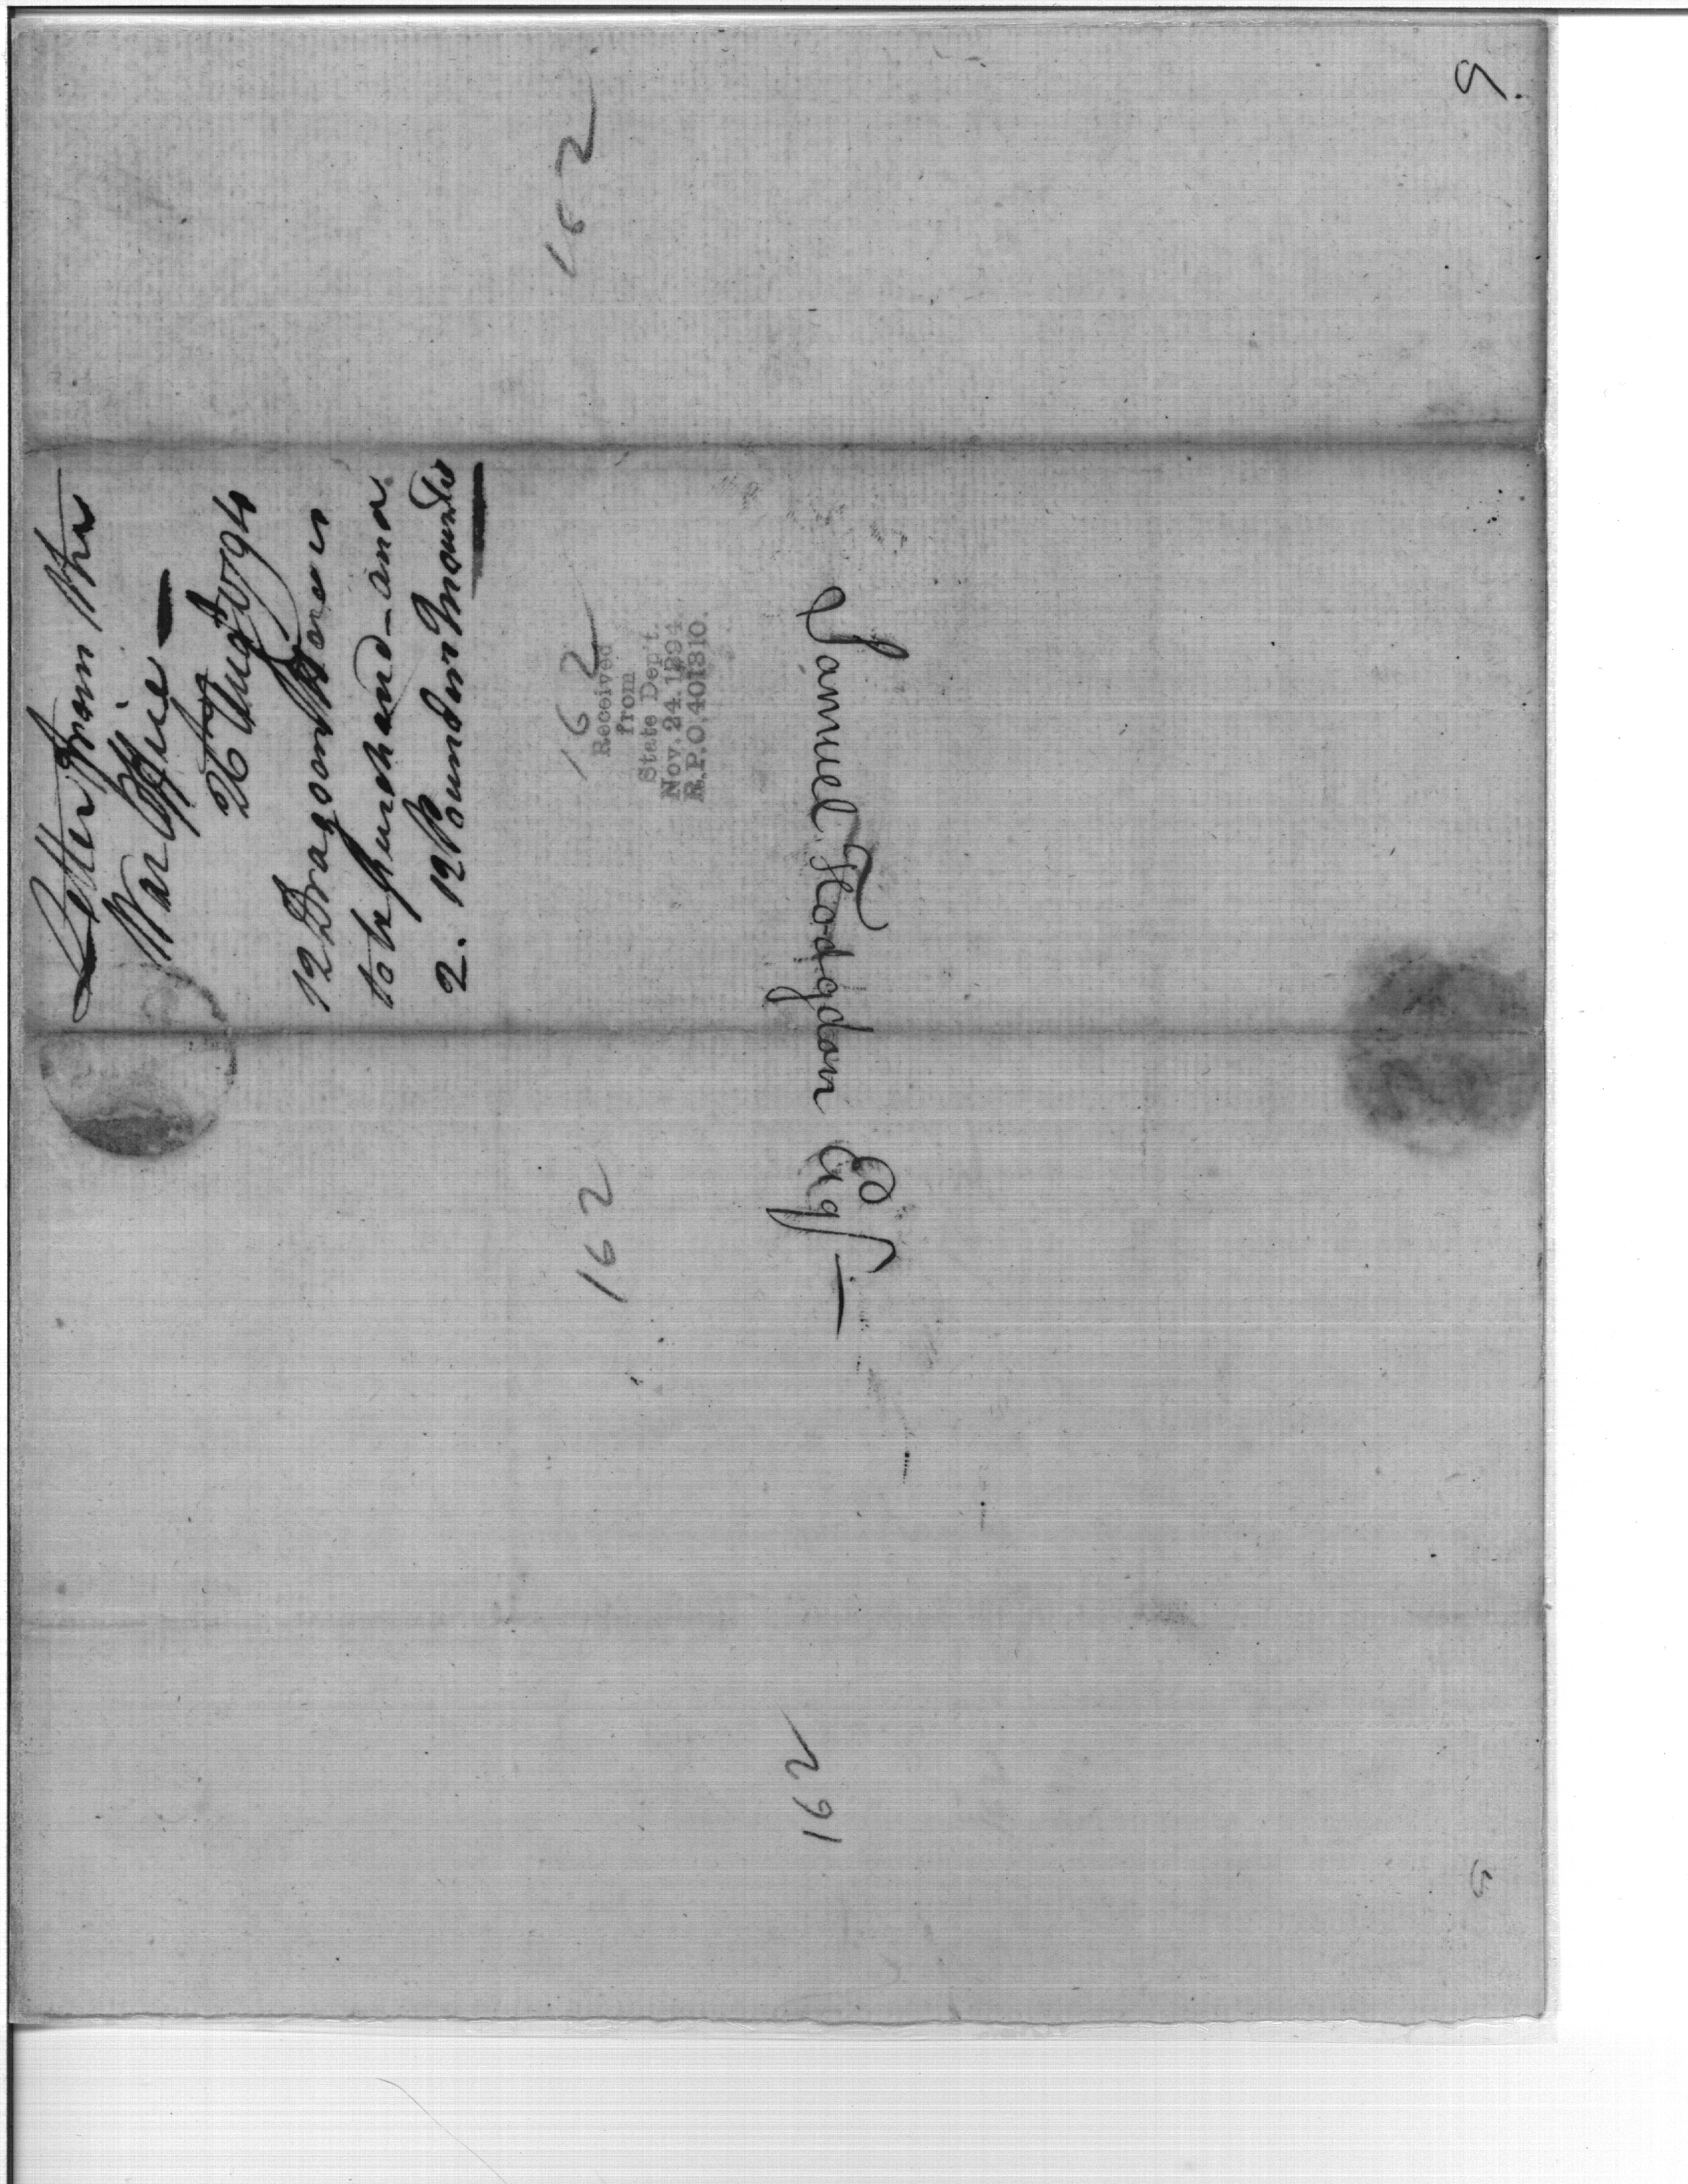 9.
162
Letter from the
War Office —
26th Augt 1794
12 Dragoon Horses
to be purchased — and
2. 12 Pounders Mounted
162
Received
from
State Dep't.
Nov. 24. 1894.
R.P.O. 401310.
Samuel Hodgdon Esqr —
162
162